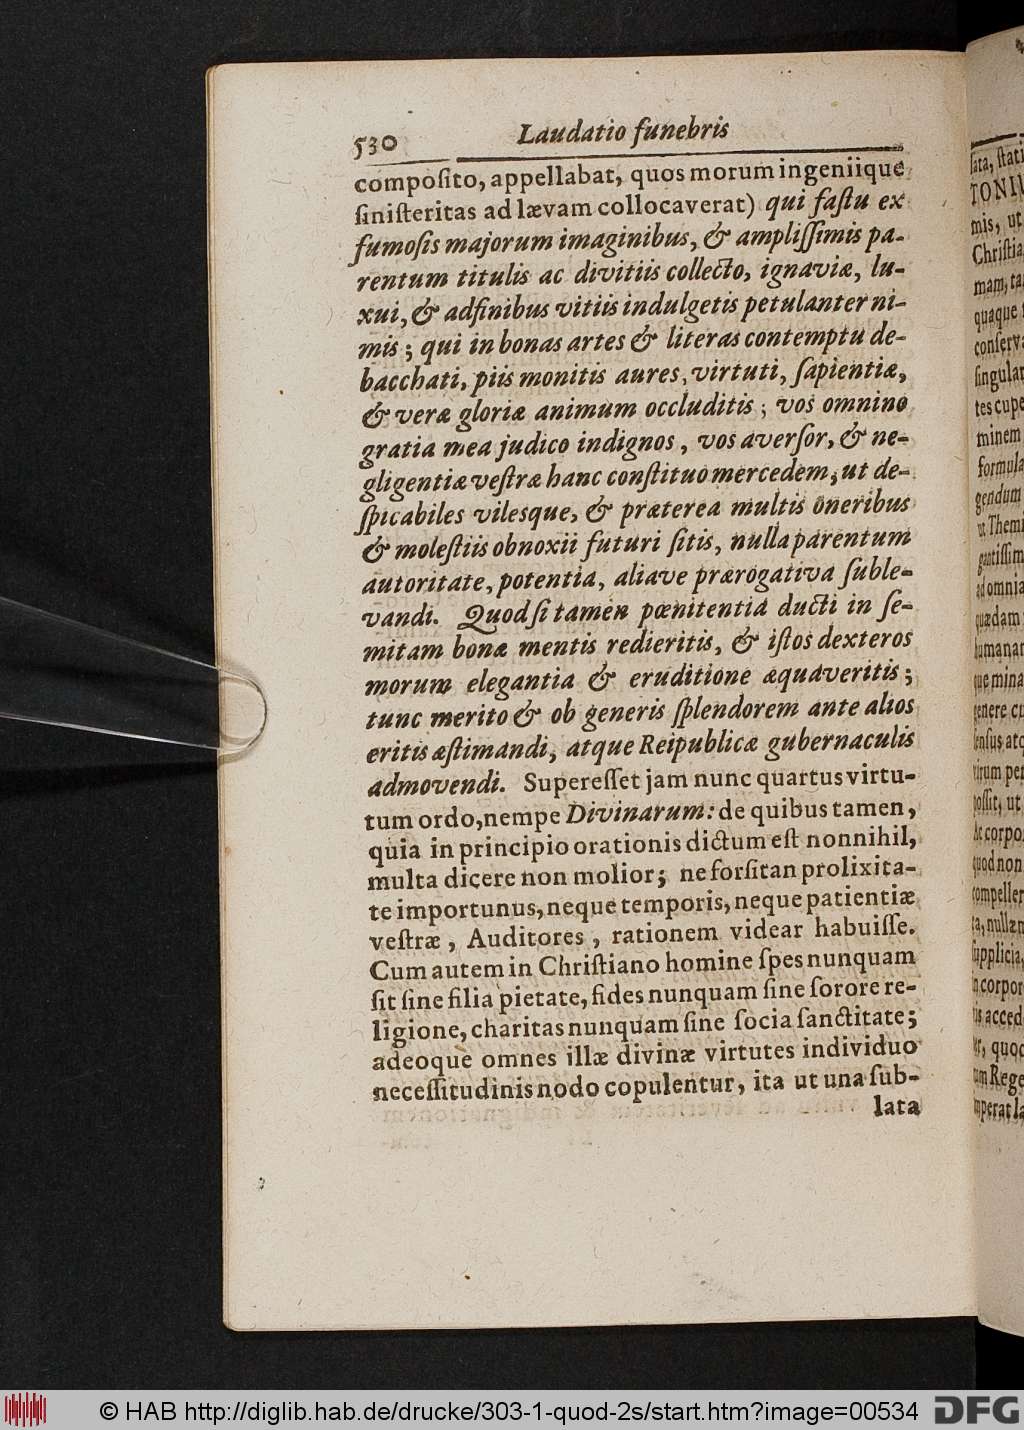 530 Laudatio funebris
compoſito, appellabat, quos morum ingeniique
ſiniſteritas ad lævam collocaverat) qui faſtu ex
fumoſis majorum imaginibus, & ampliſſimis pa-
rentum titulis ac divitiis collecto, ignaviæ, lu-
xui, & adfinibus vitiis indulgetis petulanter ni-
mis; qui in bonas artes & literas contemptu de-
bacchati, piis monitis aures, virtuti, ſapientiæ,
& veræ gloriæ animum occluditis; vos omnino
gratia mea judico indignos, vos averſor, & ne-
gligentiæ veſtræ hanc conſtituo mercedem, ut de-
ſpicabiles vilesque, & præterea multis oneribus
& moleſtiis obnoxii futuri ſitis, nulla parentum
autoritate, potentia, aliave prærogativa ſuble-
vandi. Quod ſi tamen pœnitentia ducti in ſe-
mitam bonæ mentis redieritis, & iſtos dexteros
morum elegantia & eruditione æquaveritis;
tunc merito & ob generis ſplendorem ante alios
eritis æſtimandi, atque Reipublicæ gubernaculis
admovendi. Supereſſet jam nunc quartus virtu-
tum ordo, nempe Divinarum: de quibus tamen,
quia in principio orationis dictum eſt nonnihil,
multa dicere non molior; ne forſitan prolixita-
te importunus, neque temporis, neque patientiæ
veſtræ, Auditores, rationem videar habuiſſe.
Cum autem in Chriſtiano homine ſpes nunquam
ſit ſine filia pietate, fides nunquam ſine ſorore re-
ligione, charitas nunquam ſine ſocia ſanctitate;
adeoque omnes illæ divinæ virtutes individuo
neceſſitudinis nodo copulentur, ita ut una ſub-
lata
ſata, ſtati
TONIU
mis, ut
Chriſtia
mam, ta
quaque
conſerva
ſingular
tes cupe
minem
formula
gendum
ut Themi
gantiſſim
ad omnia
quædam
humanar
que mina
genere cu
ſenſus atq
virum per
poſſit, ut
Ac corpo
quod non
compeller
ta, nullæn
ſupplicia,
in corpor
is acced
quod
um Rege
mperat la
© HAB http://diglib.hab.de/drucke/303-1-quod-2s/start.htm?image=00534
DFG